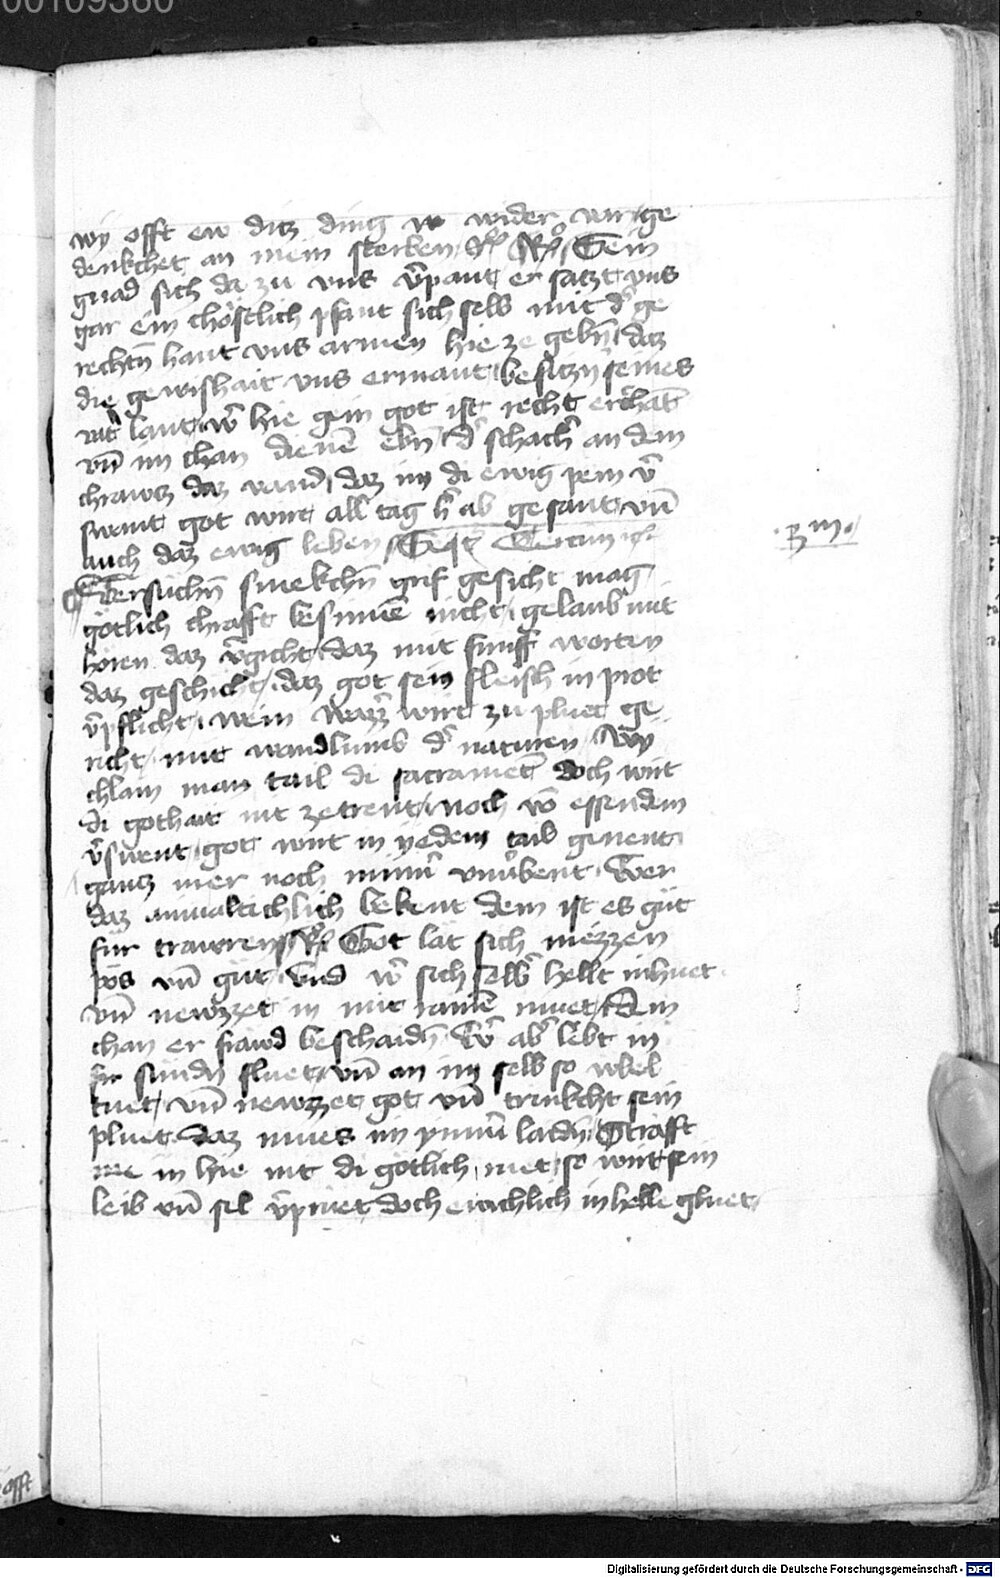 00109360
wy offt ew ditz ding w wider var ge
denkchet an mein sterben Rͦ Sein
gnad sich da zu vns v̄pant er satzt vns
gar ein chöstlich pfant sich selb mit d̄ ge
rechtn̄ hant vns armen hie ze gebn̄ daz
die gewishait vns ermant besitzn̄ seines
lant w̄ hie gein got ist recht
vn̄ im chan dienē ebn̄ d̄ schach̄ an dem
chrawtz daz vand daz im di ewig pein v̄
swant got wirt all̄ tag h̄ ab gesant vn̄
auch daz ewig leben
.3m.
Versuchn̄ smekchn̄ grif gesicht mag
götlich chrafft besinnē nicht gelaub mit
hören daz v̄gicht daz mit fünff worten
daz geschicht daz got sein fleisch in prot
v̄pflicht wein wazz̄ wirt zu pluet ge
richt mit wandlumb d̄ naturen Wy
chlain man tail di sacramēt doch wirt
di gothait nit zetrent noch vō essendem
v̄swent got wirt in yedem tail genent
gantz mer noch minn̄
daz ainualtichlich bekent dem ist es güt
für trawren Rͦ Got lät sich niezzen
pös vn̄ güt vnd w̄ sich selb̄ hellt in huet
vn̄ newzzet in mit rainē muet dem
chan er frawd beschaidn̄ W̄ ab̄ lebt in
d̄ sünden fluet vn̄ an im selb so vbel
tuet vn̄ newzzet got vn̄ trinkcht sein
pluet daz mues im ymm̄ laidn̄ Strafft
in hie nit di götlich ruet so wirt sein
leib vn̄ sel v̄prüet doch ewichlich in helle gluet
offt
Digitalisierung gefördert durch die Deutsche Forschungsgemeinschaft - DFG